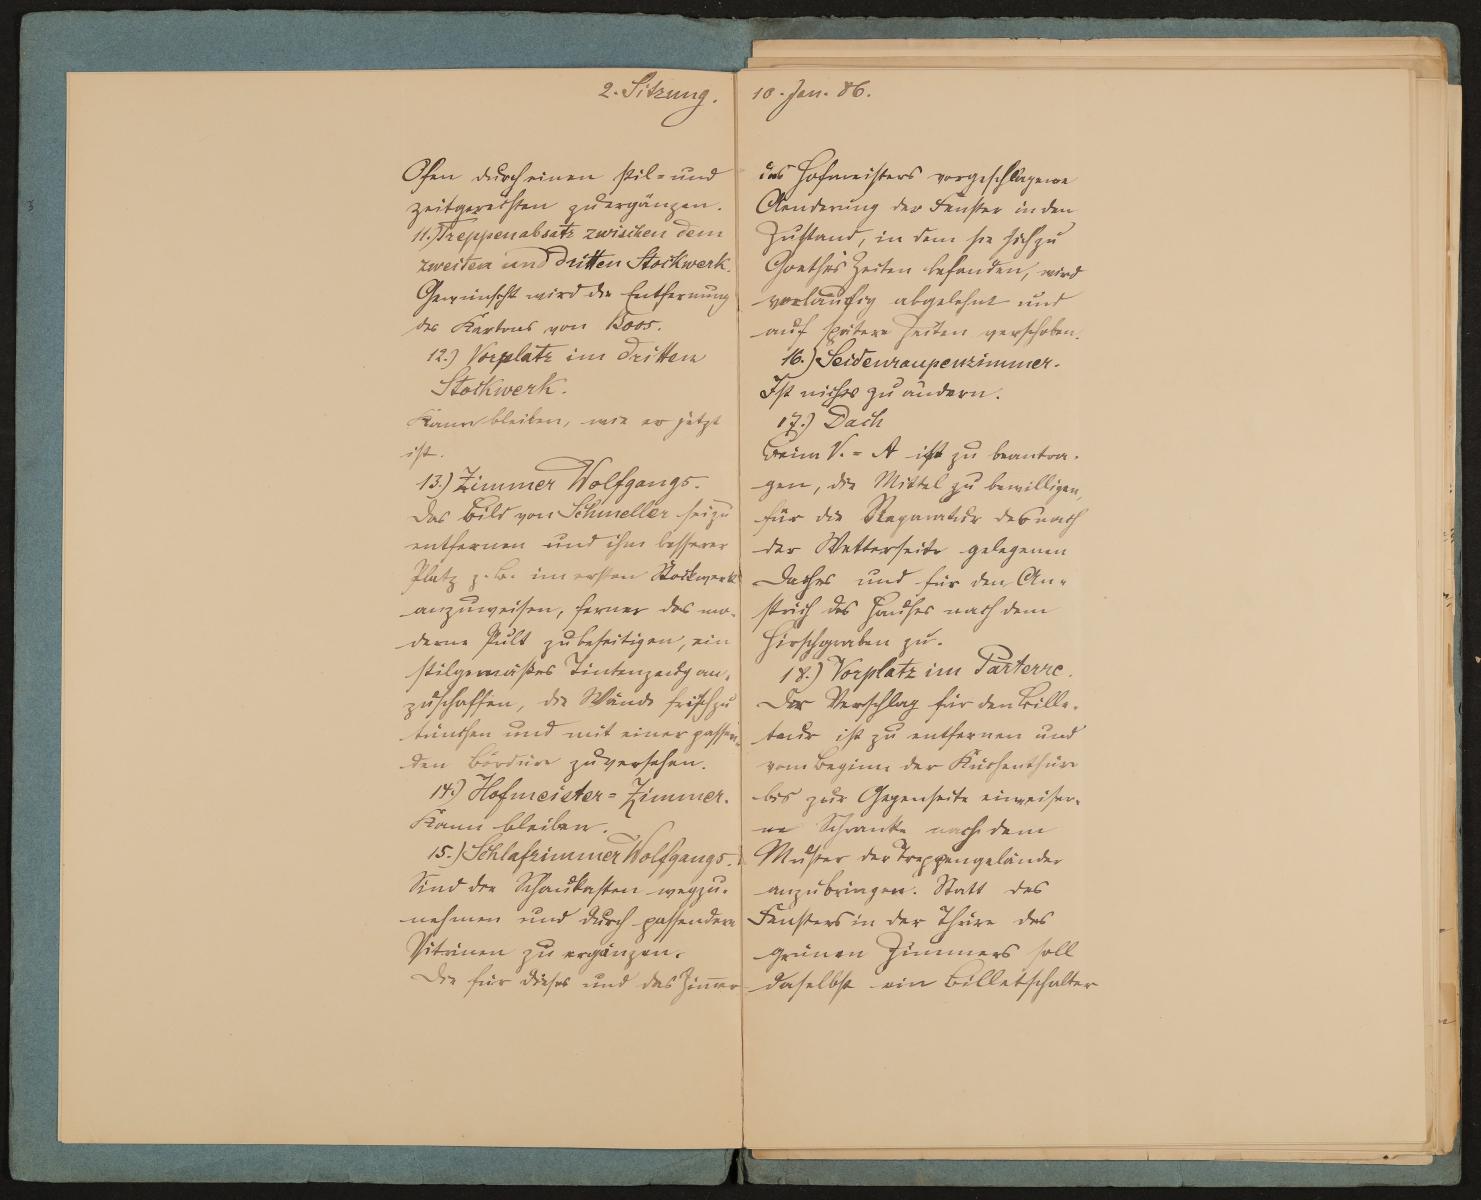 2. Sitzung.
Ofen durch einen stil- und
zeitgerechten zu ergänzen.
11.) Treppenabsatz zwischen dem
zweiten und dritten Stockwerk.
Gewünscht wird die Entfernung
des Kartons von Boos.
12.) Vorplatz im dritten
Stockwerk.
Kann bleiben, wie er jetzt
ist.
13.) Zimmer Wolfgangs.
Das Bild von Schmeller sei zu
entfernen und ihm besserer
Platz z. B. im ersten Stockwerk
anzuweisen, ferner das mo-
derne Pult zu beseitigen, ein
stilgemäßes Tintenzeug an-
zuschaffen, die Wände frisch zu
tünchen und mit einer passen-
den Bordüre zu versehen.
14.) Hofmeister-Zimmer.
Kann bleiben.
15.) Schlafzimmer Wolfgangs.
Sind die Schaukasten wegzu-
nehmen und durch passendere
Vitrinen zu ergänzen.
Die für dieses und das Zimmer
10. Jan. 86.
des Hofmeisters vorgeschlagene
Aenderung der Fenster in den
Zustand, in dem sie sich zu
Goethes Zeiten befanden, wird
vorläufig abgelehnt und
auf spätere Zeiten verschoben.
16.) Seidenraupenzimmer.
Ist nichts zu ändern.
17.) Dach
Beim V.-A ist zu beantra-
gen, die Mittel zu bewilligen,
für die Reparatur des nach
der Wetterseite gelegenen
Daches und für den An-
strich des Hauses nach dem
Hirschgraben zu.
18.) Vorplatz im Parterre.
Der Verschlag für den Bille-
teur ist zu entfernen und
vom Beginn der Küchenthüre
bis zur Gegenseite eine eiser-
ne Schranke nach dem
Muster der Treppengeländer
anzubringen. Statt des
Fensters in der Thüre des
grünen Zimmers soll
daselbst ein Billetschalter